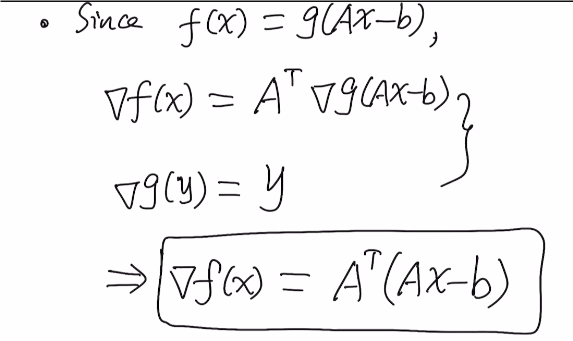 • Since f(x) = g(Ax-b),
∇f(x) = Aᵀ ∇g(Ax-b) }
∇g(y) = y
⇒ ∇f(x) = Aᵀ(Ax-b)